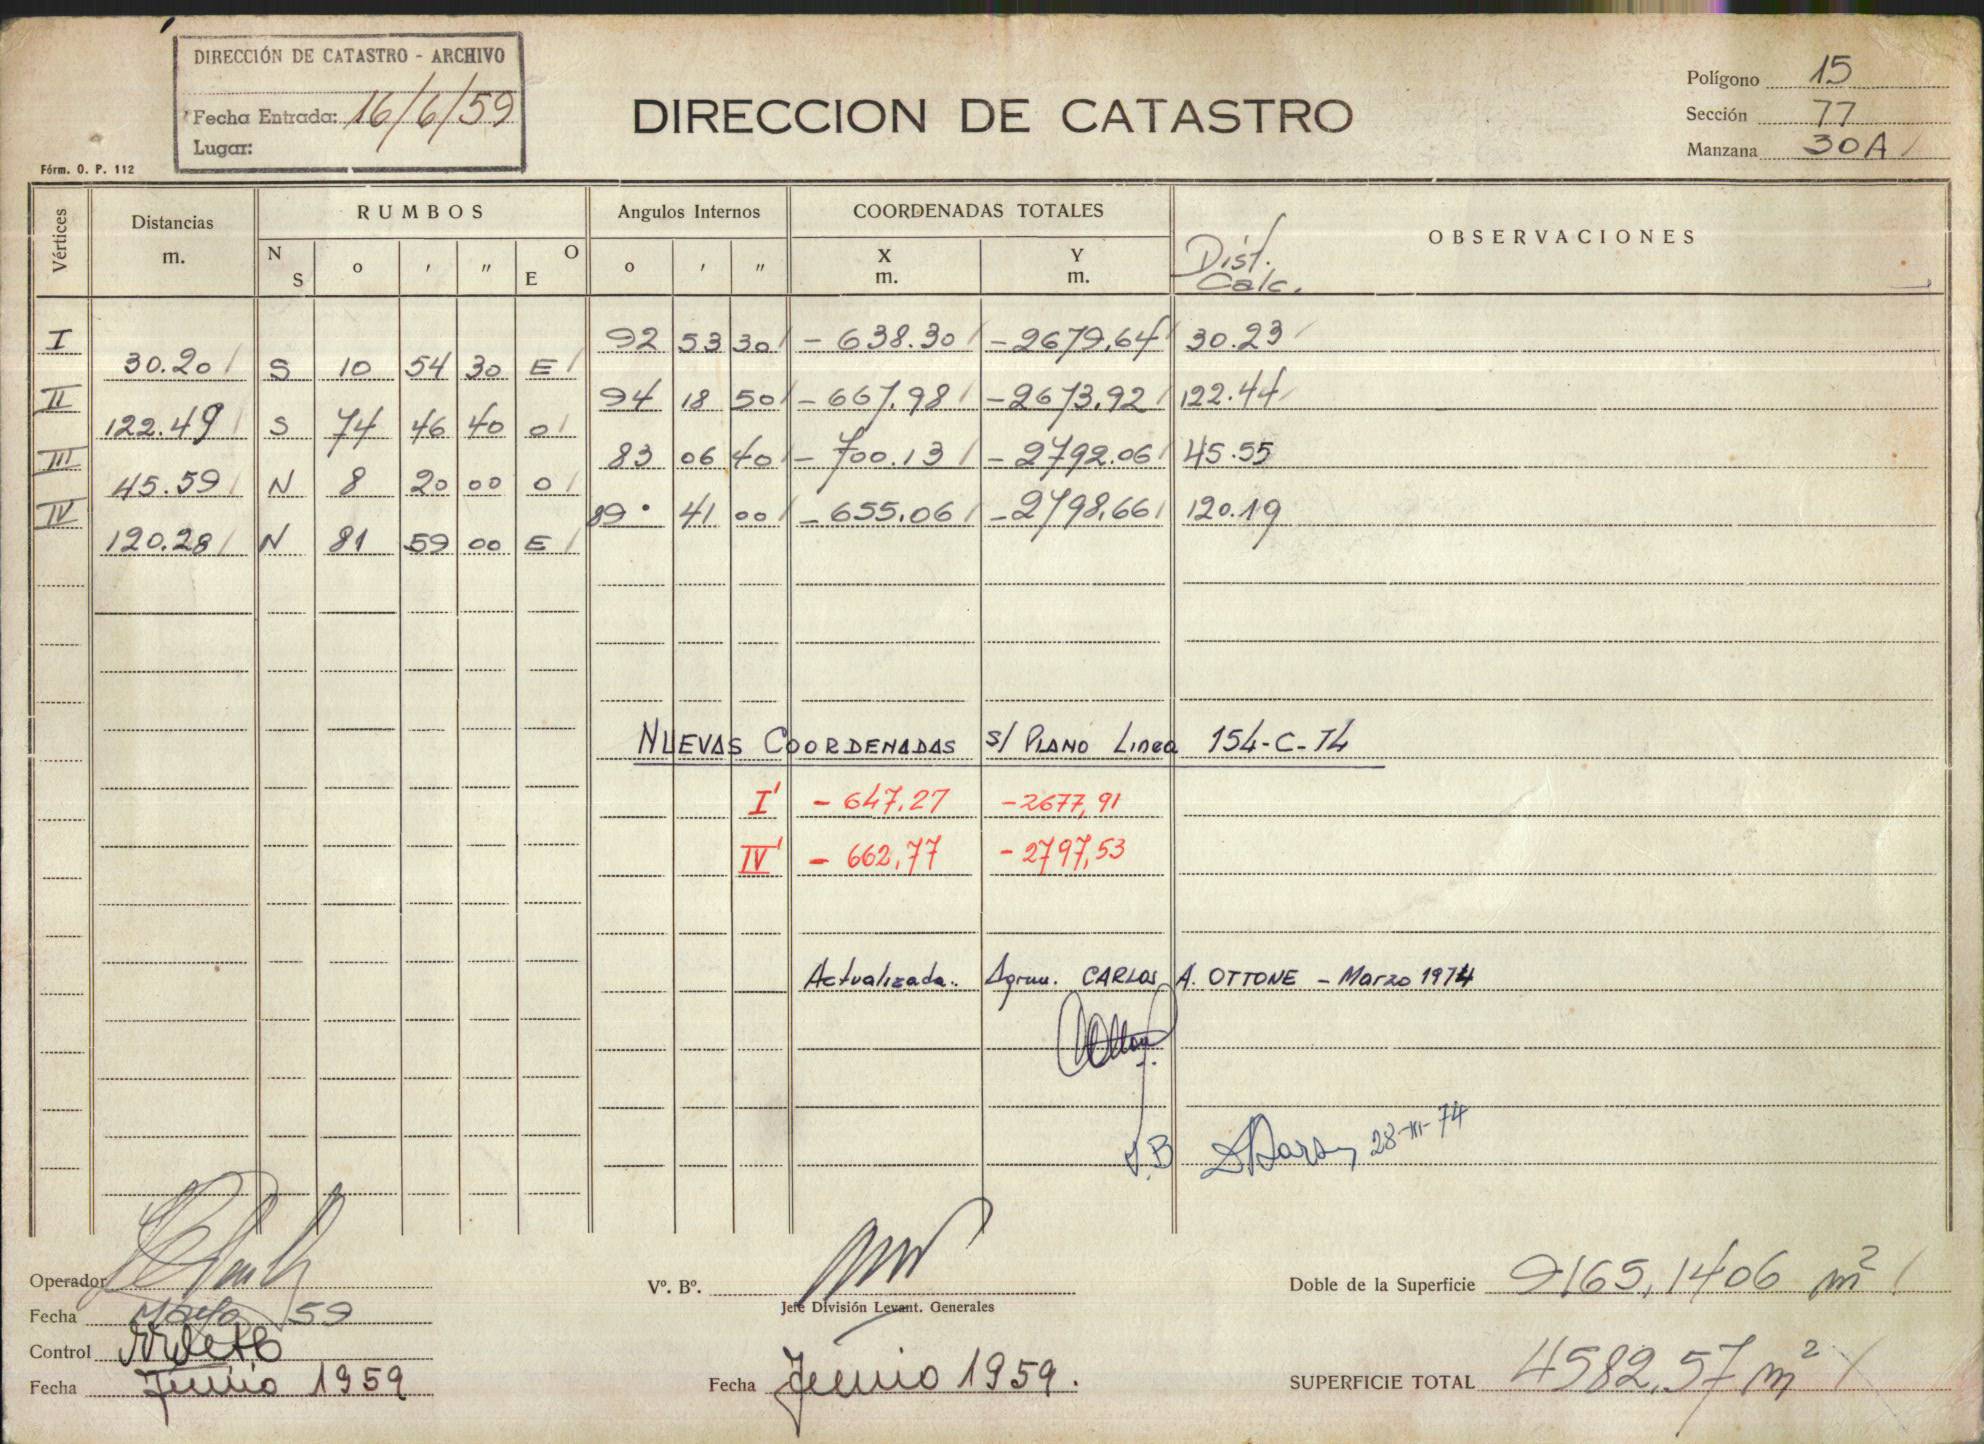 DIRECCIÓN DE CATASTRO - ARCHIVO
Fecha Entrada: 16/6/59
Lugar:
Fórm. O. P. 112
DIRECCION DE CATASTRO
Polígono 15
Sección 77
Manzana 30A
Vértices
Distancias m.
RUMBOS
N S o ' " E O
Angulos Internos
o ' "
COORDENADAS TOTALES
X m. Y m.
Dist. Calc.
OBSERVACIONES
I 92 53 30 -638.30 -2679.64 30.23
30.20 S 10 54 30 E
II 94 18 50 -667.98 -2673.92 122.44
122.49 S 74 46 40 O
III 83 06 40 -700.13 -2792.06 45.55
45.59 N 8 20 00 O
IV 89 41 00 -655.06 -2798.66 120.19
120.28 N 81 59 00 E
NUEVAS COORDENADAS s/ PLANO Linea 154-C-74
I' -647,27 -2677,91
IV' -662,77 -2797,53
Actualizada. Agrim. CARLOS A. OTTONE - Marzo 1974
V.B 28-III-74
Operador
Fecha Mayo 59
Control
Fecha Junio 1959
Vº. Bº.
Jefe División Levant. Generales
Fecha Junio 1959.
Doble de la Superficie 9165,1406 m²
SUPERFICIE TOTAL 4582,57 m²